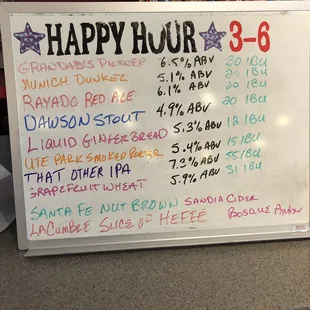 HAPPY HOUR 3-6
GRANDAD'S PILSNER 6.5% ABV 20 IBU
MUNICH DUNKEL 5.1% ABV 20 IBU
RAYADO RED ALE 6.1% ABV 20 IBU
DAWSON STOUT 4.9% ABV 20 IBU
LIQUID GINGERBREAD 5.3% ABV 18 IBU
UTE PARK SMOKED PORTER 5.4% ABV 15 IBU
THAT OTHER IPA 7.3% ABV 55 IBU
GRAPEFRUIT WHEAT 5.9% ABV 31 IBU
SANTA FE NUT BROWN SANDIA CIDER
LA CUMBRE SLICE OF HEFEE BOSQUE